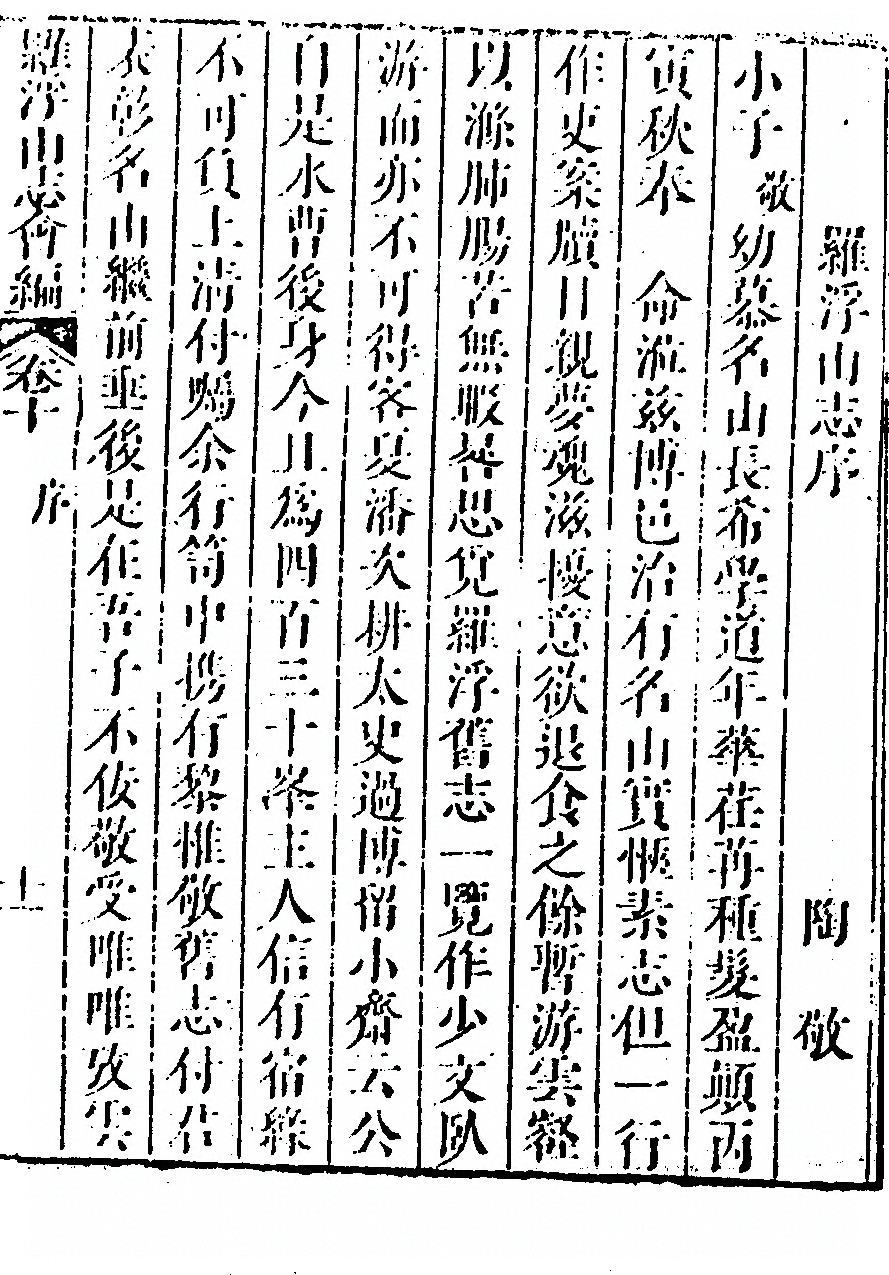 羅浮山志序
陶敬
小子敬幼慕名山長希學道年華荏苒種髮盈顛丙
寅秋奉　命涖兹博邑治有名山實愜素志但一行
作吏案牘日親夢魂滋擾意欲退食之餘暫游雲壑
以滌肺腸苦無暇晷思覓羅浮舊志一覽作少文臥
游而亦不可得客夏潘次耕太史過博留小齋云公
自是水曹後身今且為四百三十峯主人信有宿緣
不可負上清付囑余行笥中携有黎惟敬舊志付君
表彰名山繼前垂後是在吾子不佞敬受唯唯攷雲
羅浮山志彚編 卷十 序 十